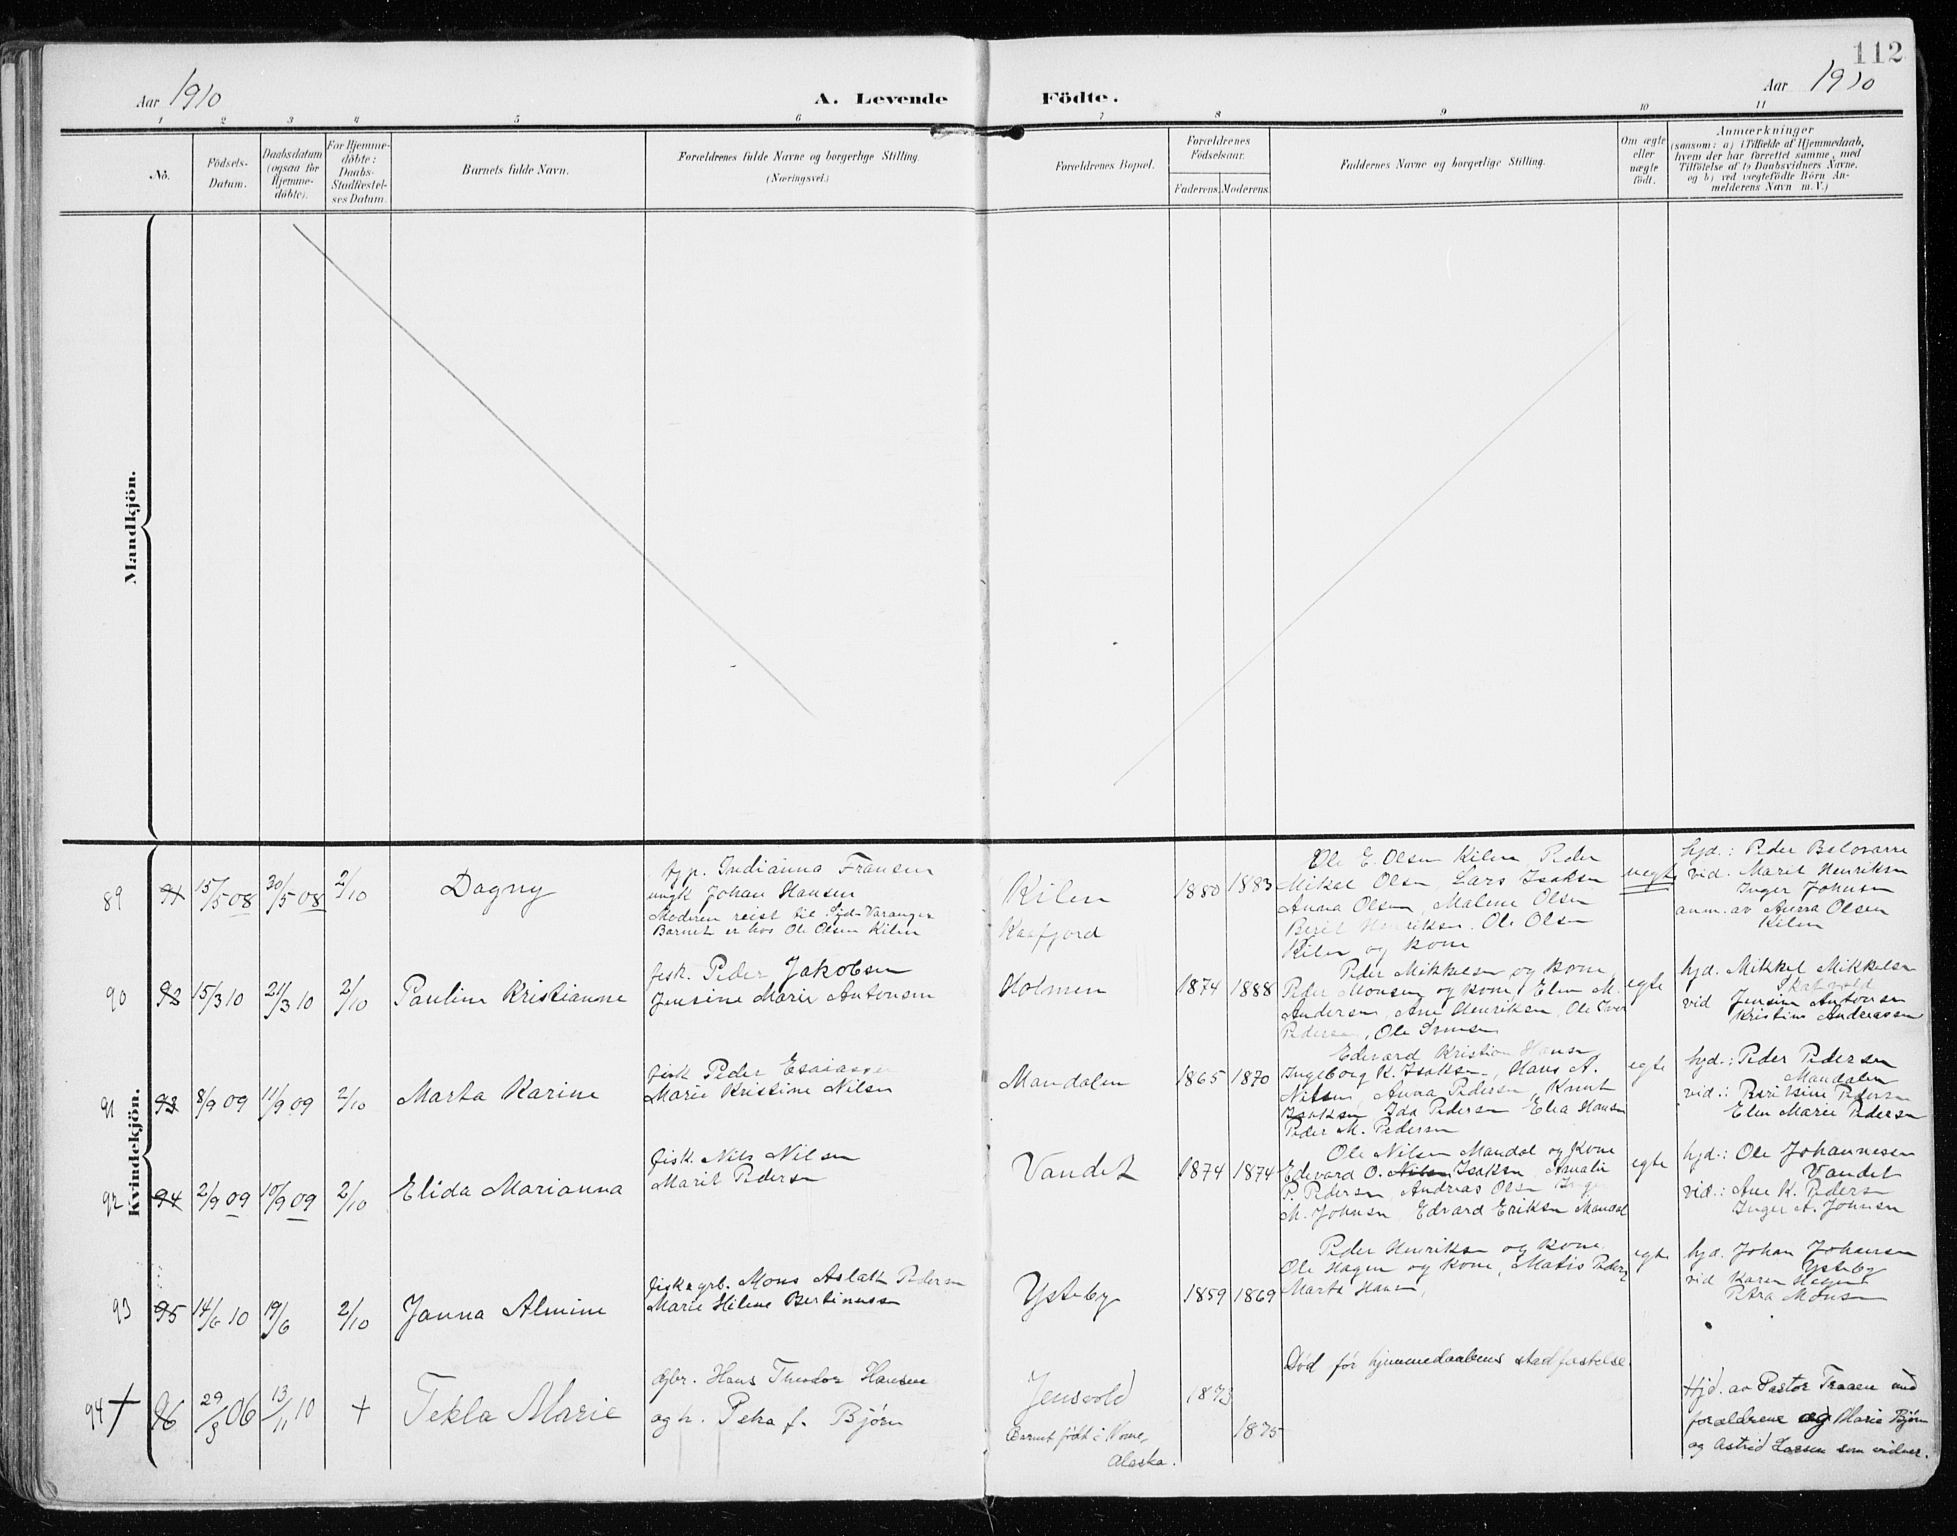 112
Aar 1910
A. Levende Födte.
Aar 1910
1 2 3 4 5 6 7 8 9 10 11
Nö.
Födsels-Datum.
Daabsdatum (ogsaa for Hjemme-döbte).
For Hjemme-döbte: Daabs-Stadfæstel-ses Datum.
Barnets fulde Navn.
Forældrenes fulde Navne og borgerlige Stilling.
(Næringsvei.)
Forældrenes Bopæl.
Forældrenes Födselsaar.
Faderens. Moderens.
Faddernes Navne og borgerlige Stilling.
Om ægte eller uægte födt.
Anmærkninger
(saasom: a) i Tilfælde af Hjemmedaab,
hvem der har forrettet samme, med
Tilföielse af to Daabsvidners Navne.
og b) ved uægtefödte Börn An-
melderens Navn m. V.)
Mandkjön.
Kvindekjön.
89 91 15/5 08 30/5 08 2/10 Dagny
Indianna Fransen
ungk Johan Hansen
Moderen reist til Syd-Varanger
Barnet er hos Ole Olsen Kilen
Kilen
Kaafjord
1880 1883
Ole E. Olsen Kilen, Peder
Mikal Olsen, Lars Isaksen
Anna Olsen, Malene Olsen
Berit Henriksen, Ole Olsen
Kilen og kone
uegte
hjd.: Peder Belovarre
vid. Marit Henriksen
Inger Johnsen
anm. av Anna Olsen
Kilen
90 92 15/3 10 21/3 10 2/10 Pauline Kristianne
fisk. Peder Jakobsen
Jensine Marie Antonsen
Holmen
1874 1888
Peder Mikkelsen og kone,
Peder Monsen og kone, Elen M.
Andersen, Ane Henriksen, Ole Iver
Pedersen, Ole
egte
hjd. Mikkel Mikkelsen
Skatvold
vid Jensine Antonsen
Kristine Andreassen
91 93 8/9 09 11/9 09 2/10 Marta Karine
fisk Peder Esaiassen
Marie Kristine Nilsen
Mandalen
1865 1870
Edevard Kristian Hansen
Ingeborg K. Isaksen, Hans A.
Nilsen, Anna Pedersen, Knut
Isaksen, Ida Pedersen Elea Hansen
Peder M. Pedersen
egte
hjd.: Peder Pedersen
Mandalen
vid.: Beriksine Pedersen
Elen Marie Pedersen
92 94 2/9 09 10/9 09 2/10 Elida Marianna
fisk. Nils Nilsen
Marit Pedersen
Vandet
1874 1874
Ole Nilsen Mandal og kone
Edevard O. Nilsen Isaksen Amalie
P. Pedersen, Andreas Olsen Inger
M. Johnsen, Edvard Eriksen Mandal
egte
hjd.: Ole Johannessen
Vandet
vid.: Ane K. Pedersen
Inger A. Johnsen
93 95 14/6 10 19/6 2/10 Janna Almine
fisk & grb. Mons Aslak Pedersen
Marie Helene Bertinussen
Ysteby
1859 1869
Peder Henriksen og kone
Ole Hagen og kone, Matis Peders
Marta Hansen,
egte
hjd. Johan Johansen
Ysteby
vid Karen Hagen
Petra Monsen
94 + 96 29/3 06 13/1 10 + Tekla Marie
gbr. Hans Theodor Hansen
og h. Petra f. Bjørn
Jensvold
Barnet født i Nome,
Alaska.
1873
1875
Død før hjemmedaabens stadfæstelse
Hjd. av Pastor Traaen med
forældrene og Marie Bjørn
og Astrid Larsen som vidner.